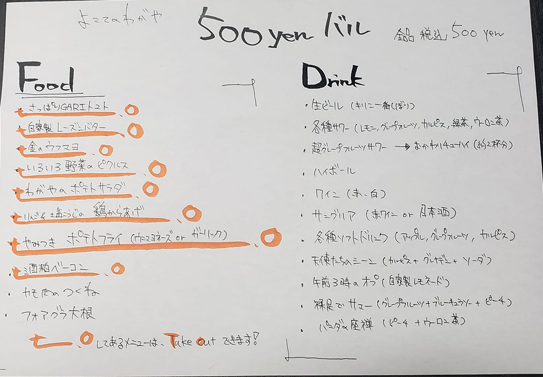 よこてのわがや
500yen バル 全品 税込 500yen
Food
・さっぱりGARIトマト
・自家製 レーズンバター
・金のウフマヨ
・いろいろ野菜のピクルス
・わがやの ポテトサラダ
鶏からあげ
・やみつき ポテトフライ (ウニマヨネーズ or ガーリック)
・酒粕ベーコン
・つくね
・フォアグラ大根
してあるメニューは、Take out できます!
Drink
・生ビール (キリン一番しぼり)
・各種サワー (レモン、グレープフルーツ、カルピス、緑茶、ウーロン茶)
・超グレープフルーツサワー → おかわりチューハイ (約2杯分)
・ハイボール
・ワイン (赤、白)
・サングリア (赤ワイン or 日本酒)
・各種ソフトドリンク (アップル、グレープフルーツ、カルピス)
・天使たちのシーン (カルピス+グレナデン+ソーダ)
・午前3時のオプ (自家製レモネード)
・裸足でサマー (グレープフルーツ+ブルーキュラソー+ピーチ)
・パンダの座禅 (ピーチ+ウーロン茶)